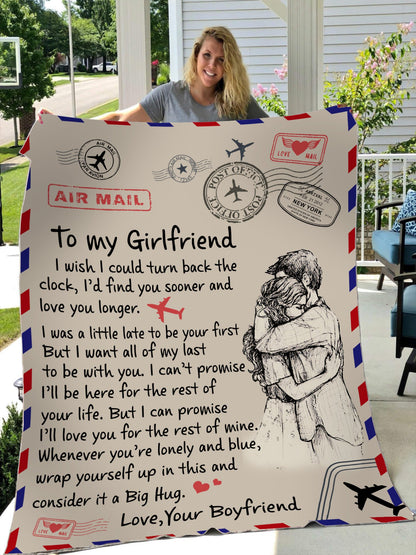 LOVE MAIL
POST OFFICE
POST OFFICE
AIR MAIL
NEW YORK
To my Girlfriend
I wish I could turn back the
clock, I'd find you sooner and
love you longer.
I was a little late to be your first
But I want all of my last
to be with you. I can't promise
I'll be here for the rest of
your life. But I can promise
I'll love you for the rest of mine.
Whenever you're lonely and blue,
wrap yourself up in this and
consider it a Big Hug.
Love,Your Boyfriend